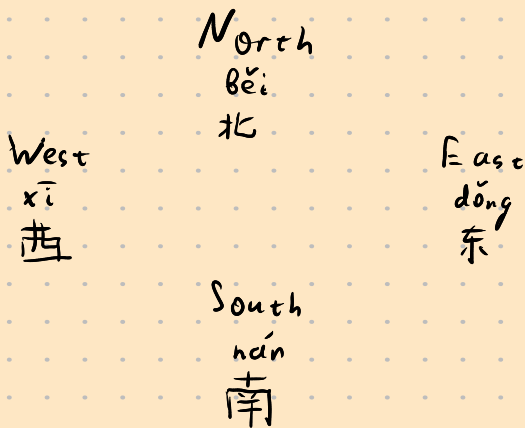 North
běi
北
West
xī
西
East
dǒng
东
South
nán
南